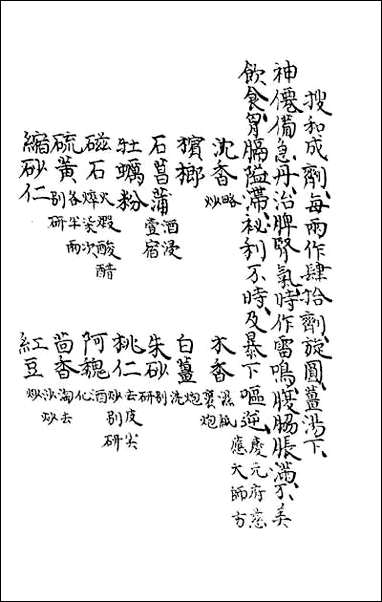 搜和成劑、每兩作肆拾劑、旋圓、薑湯下、
神僊備急丹、治脾腎氣、時作雷鳴、腹脇脹滿、不美
飲食、胃膈隘滯、祕利不時、及暴下嘔逆、慶元府應天師方
沈香略炒 木香濕紙裹炮
檳榔 白薑炮洗
石菖蒲酒浸壹宿 朱砂別研
牡蠣粉 桃仁去皮尖炒別研
磁石火煅醋淬次 阿魏酒化
硫黃各半兩別研 茴香淘去沙炒
縮砂仁 紅豆炒